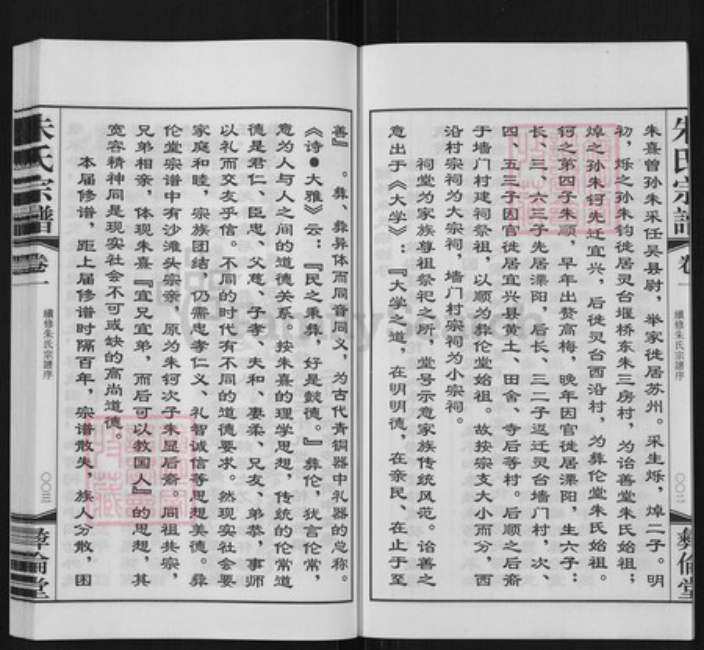 朱氏宗譜
卷一
續修朱氏宗譜序
〇〇二
彝倫堂
朱熹曾孙朱采任吴县尉，举家徙居苏州。采生烁，焯二子。明
初，烁之孙朱钧徙居灵台堰桥东朱三房村，为诒善堂朱氏始祖；
焯之孙朱钶先迁宜兴，后徙灵台西沿村，为彝伦堂朱氏始祖。
钶之第四子朱顺，早年出赘高梅，晚年因官徙居溧阳，生六子：
长、三、六三子先居溧阳，后长、三二子返迁灵台墙门村，次、
四、五三子因官徙居宜兴县黄土、田舍、寺后等村。后顺之后裔
于墙门村建祠祭祖，以顺为彝伦堂始祖。故按宗支大小而分，西
沿村宗祠为大宗祠，墙门村宗祠为小宗祠。
祠堂为家族尊祖祭祀之所，堂号示意家族传统风范。诒善之
意出于《大学》：『大学之道，在明明德，在亲民、在止于至
善』。彝、彝异体而同音同义，为古代青铜器中礼器的总称。
《诗●大雅》云：『民之秉彝，好是懿德。』彝伦，犹言伦常，
意为人与人之间的道德关系。按朱熹的理学思想，传统的伦常道
德是君仁、臣忠、父慈、子孝、夫和、妻柔、兄友、弟恭，事师
以礼而交友乎信。不同的时代有不同的道德要求。然现实社会要
家庭和睦，宗族团结，仍需忠孝仁义、礼智诚信等思想美德。彝
伦堂宗谱中有沙滩头宗亲，原为朱钶次子朱显后裔。同祖共宗，
兄弟相亲，体现朱熹『宜兄宜弟，而后可以教国人』的思想，其
宽容精神同是现实社会不可或缺的高尚道德。
本届修谱，距上届修谱时隔百年，宗谱散失，族人分散，因
朱氏宗譜
卷一
續修朱氏宗譜序
〇〇三
彝倫堂